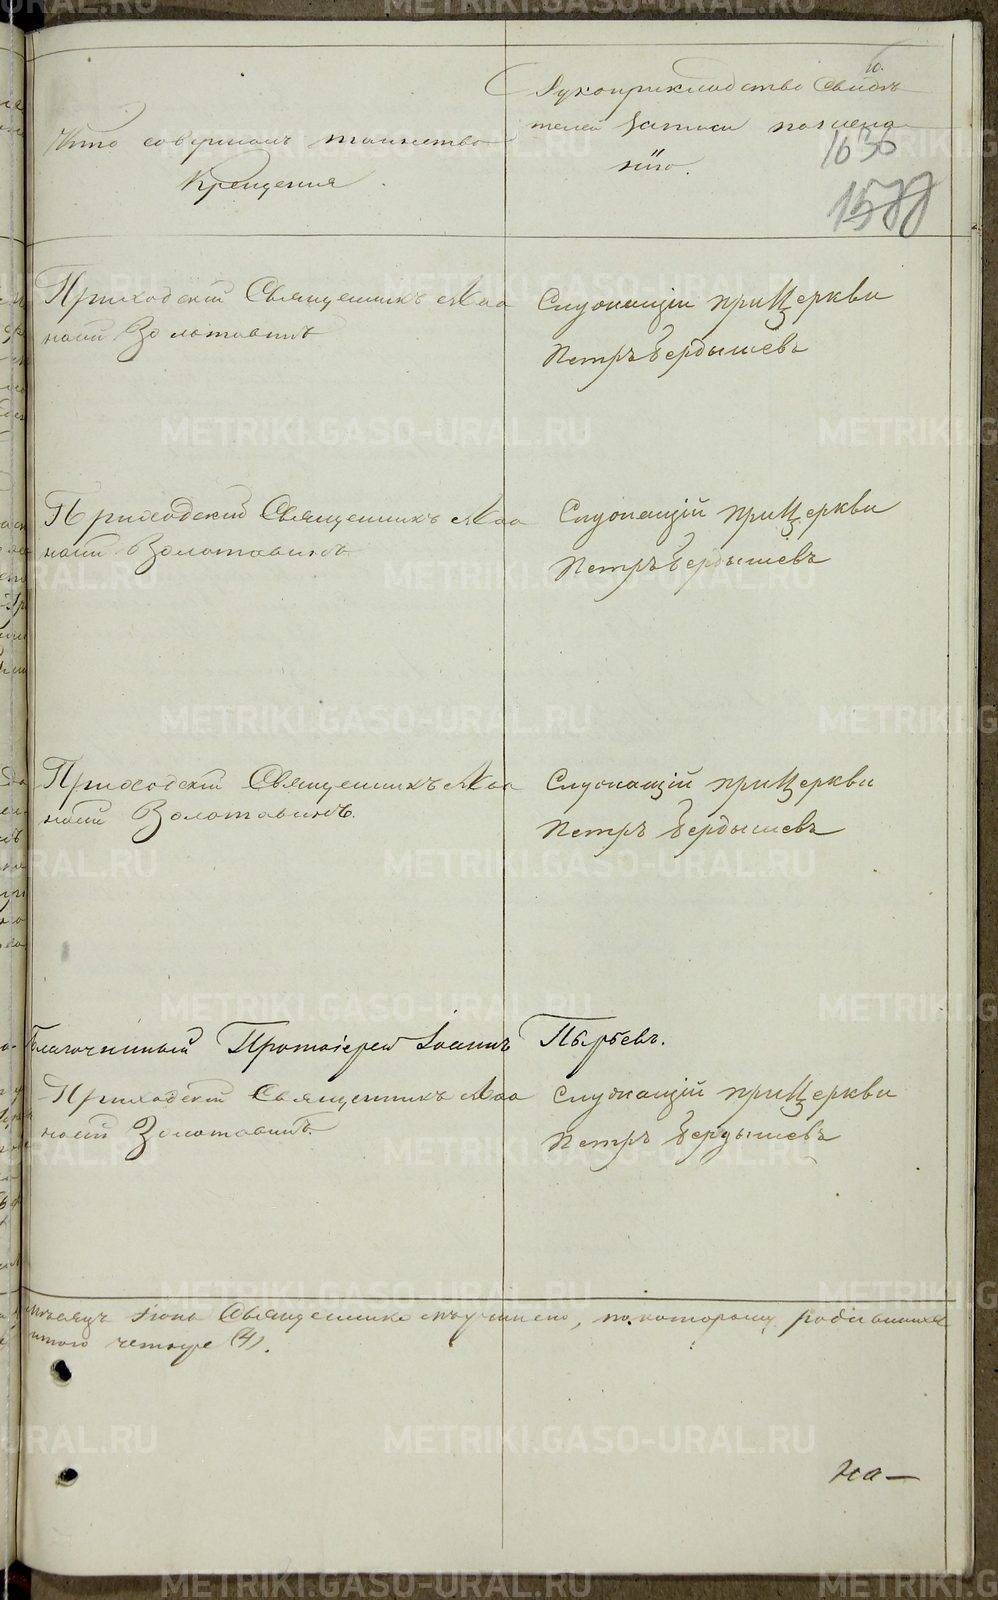 10.
Кто совершалъ таинство
Крещенія.
Рукоприкладство свидѣ
телей записи по жела
нію.
1630
1577
Приходскій Священникъ
Золотавинъ
Служащій при Церкви
Петръ Бердышевъ
Приходскій Священникъ
Золотавинъ
Служащій при Церкви
Петръ Бердышевъ
Приходскій Священникъ
Золотавинъ.
Служащій при Церкви
Петръ Бердышевъ
Благочинный Протоіерей Іоаннъ Пырьевъ.
Приходскій Священникъ
Золотавинъ.
Служащій при Церкви
Петръ Бердышевъ
по которому родившихся
итого четыре (4).
на—
METRIKI.GASO-URAL.RU